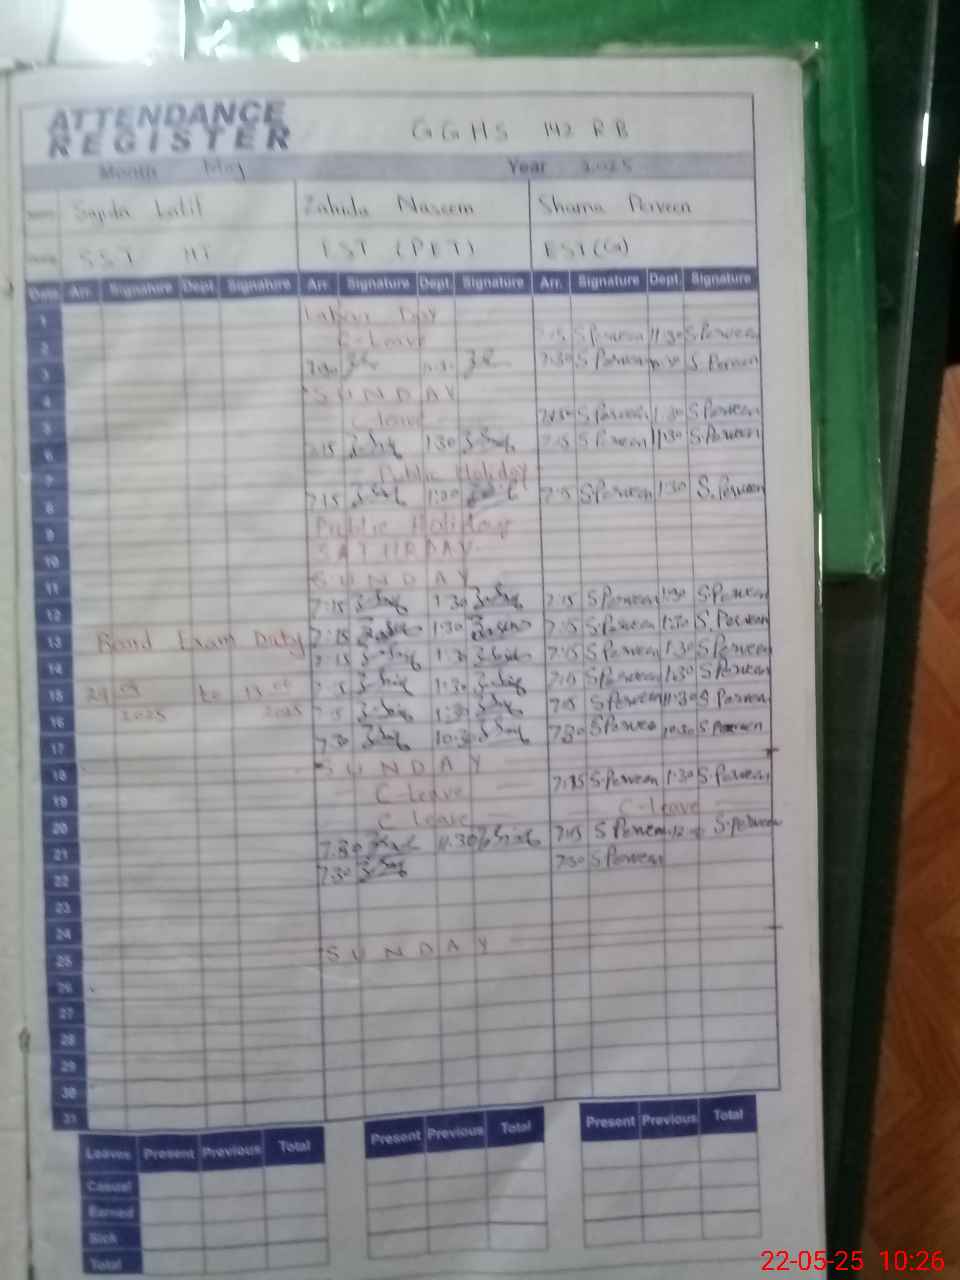 ATTENDANCE REGISTER GGHS 142 RB
Month May Year 2025
Sajida Latif Zahida Naseem Shama Perveen
SST EST (PET) EST (G)
Date Arr. Signature Dept. Signature Arr. Signature Dept. Signature Arr. Signature Dept. Signature
1 Labour Day
2 C-Leave 7:15 S Perveen 11:30 S.Perveen
3 7:30 S Perveen S.Perveen
4 SUNDAY
5 C-leave S Perveen 1:30 S Perveen
6 7:15 1:30 7:15 S Perveen 11:30 S.Perveen
7 Public Holiday
8 7:15 1:30 7:15 S Perveen 1:30 S.Perveen
9 Public Holiday
10 SATURDAY
11 SUNDAY
12 7:15 1:30 7:15 S Perveen 1:30 S.Perveen
13 Board Exam Duty 7:15 1:30 7:15 S Perveen 1:30 S.Perveen
14 7:15 1:30 7:15 S Perveen 1:30 S.Perveen
15 to 1:30 7:15 S Perveen 1:30 S Perveen
16 2025 2025 1:30 7:15 S Perveen 11:30 S Perveen
17 7:30 10:30 7:30 S Perveen 10:30 S Perveen
18 SUNDAY
19 C-leave 7:15 S.Perveen 1:30 S.Perveen
20 C Leave C-leave
21 7:30 11:30 7:15 S Perveen S.Perveen
22 7:30 7:30 S Perveen
23
24
25 SUNDAY
26
27
28
29
30
31
Leaves Present Previous Total Present Previous Total Present Previous Total
Casual
Earned
Sick
Total
22-05-25 10:26